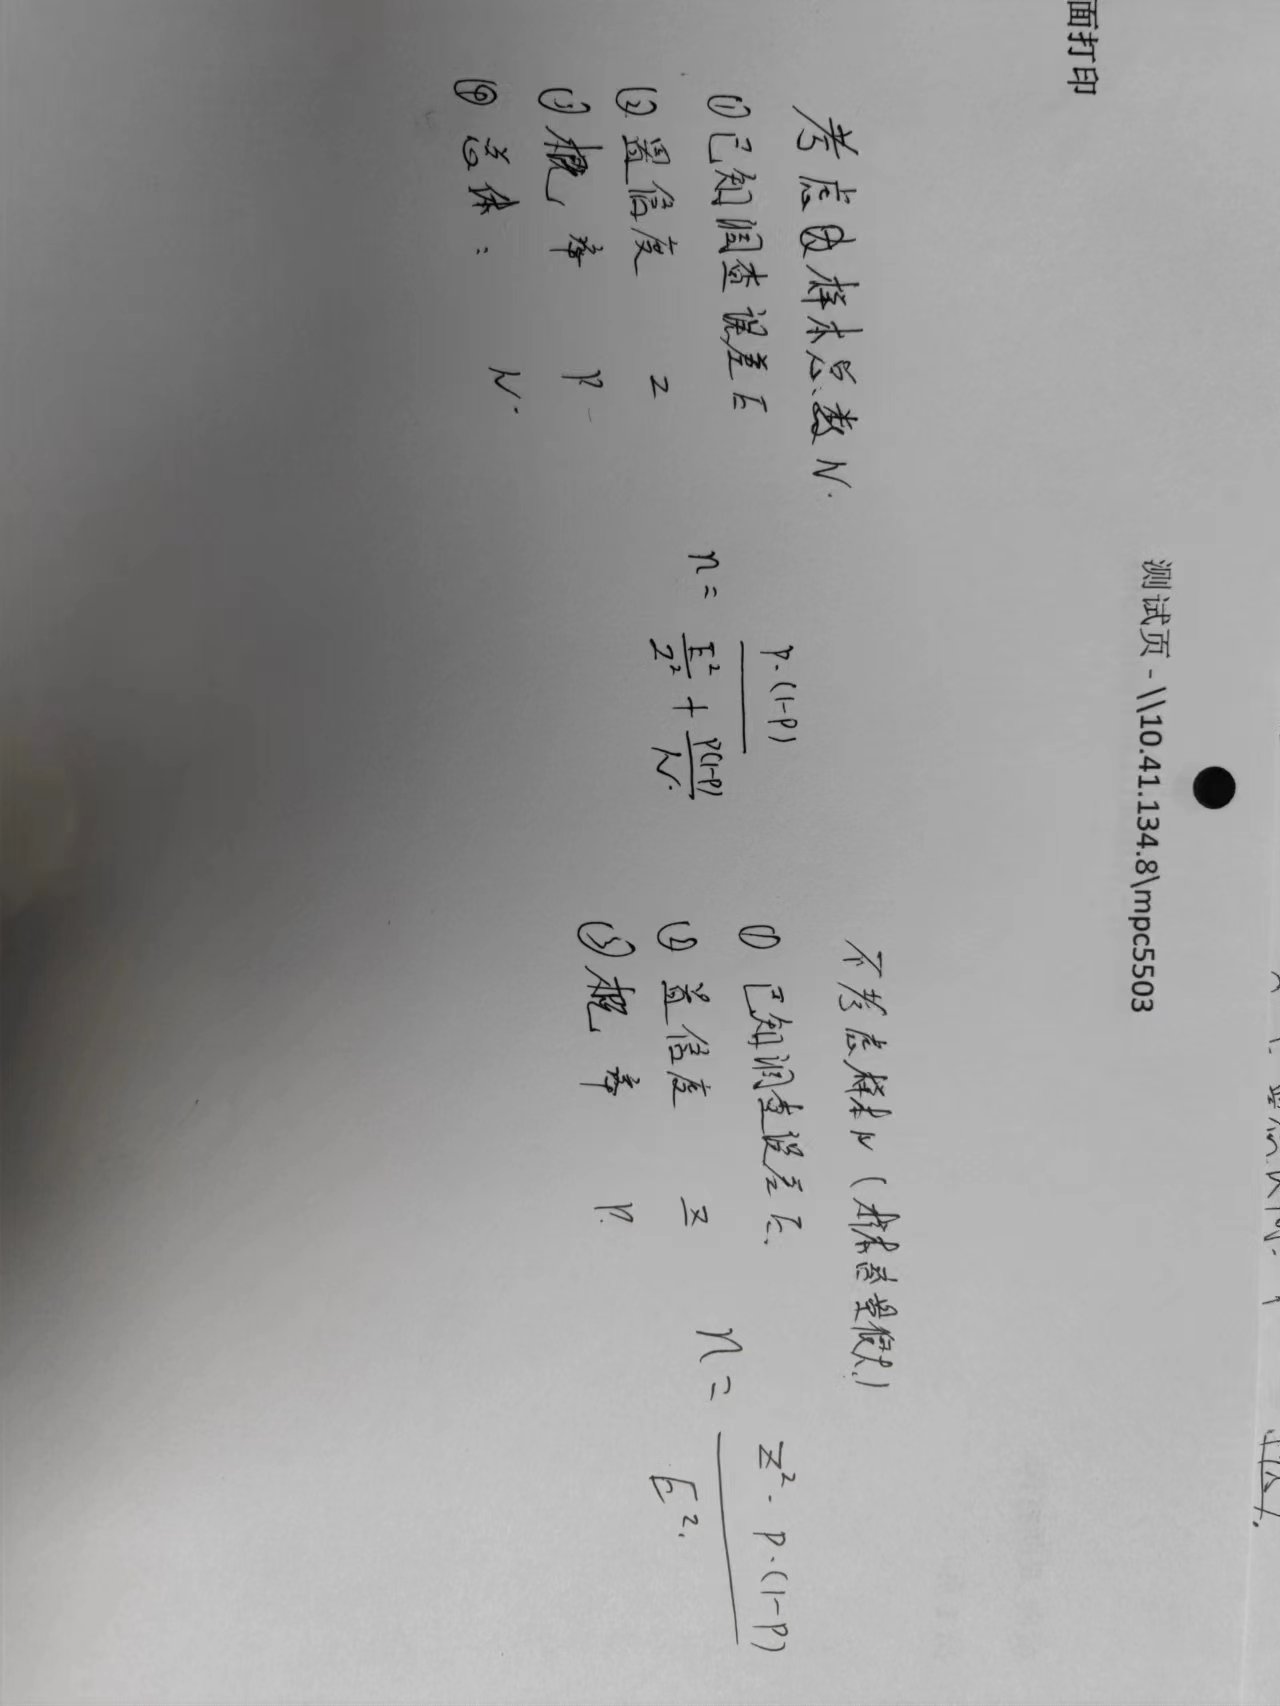 面打印
测试页 - \\10.41.134.8\mpc5503
考虑因样本总数 N.
① 已知调查误差 E
② 置信度 Z
③ 概率 P
④ 总体: N.
n = p·(1-p) / (E²/Z² + P(1-P)/N.)
不考虑样本 N (样本容量很大)
① 已知调查误差 E.
② 置信度 Z
③ 概率 P.
n = Z²·P·(1-P) / E².